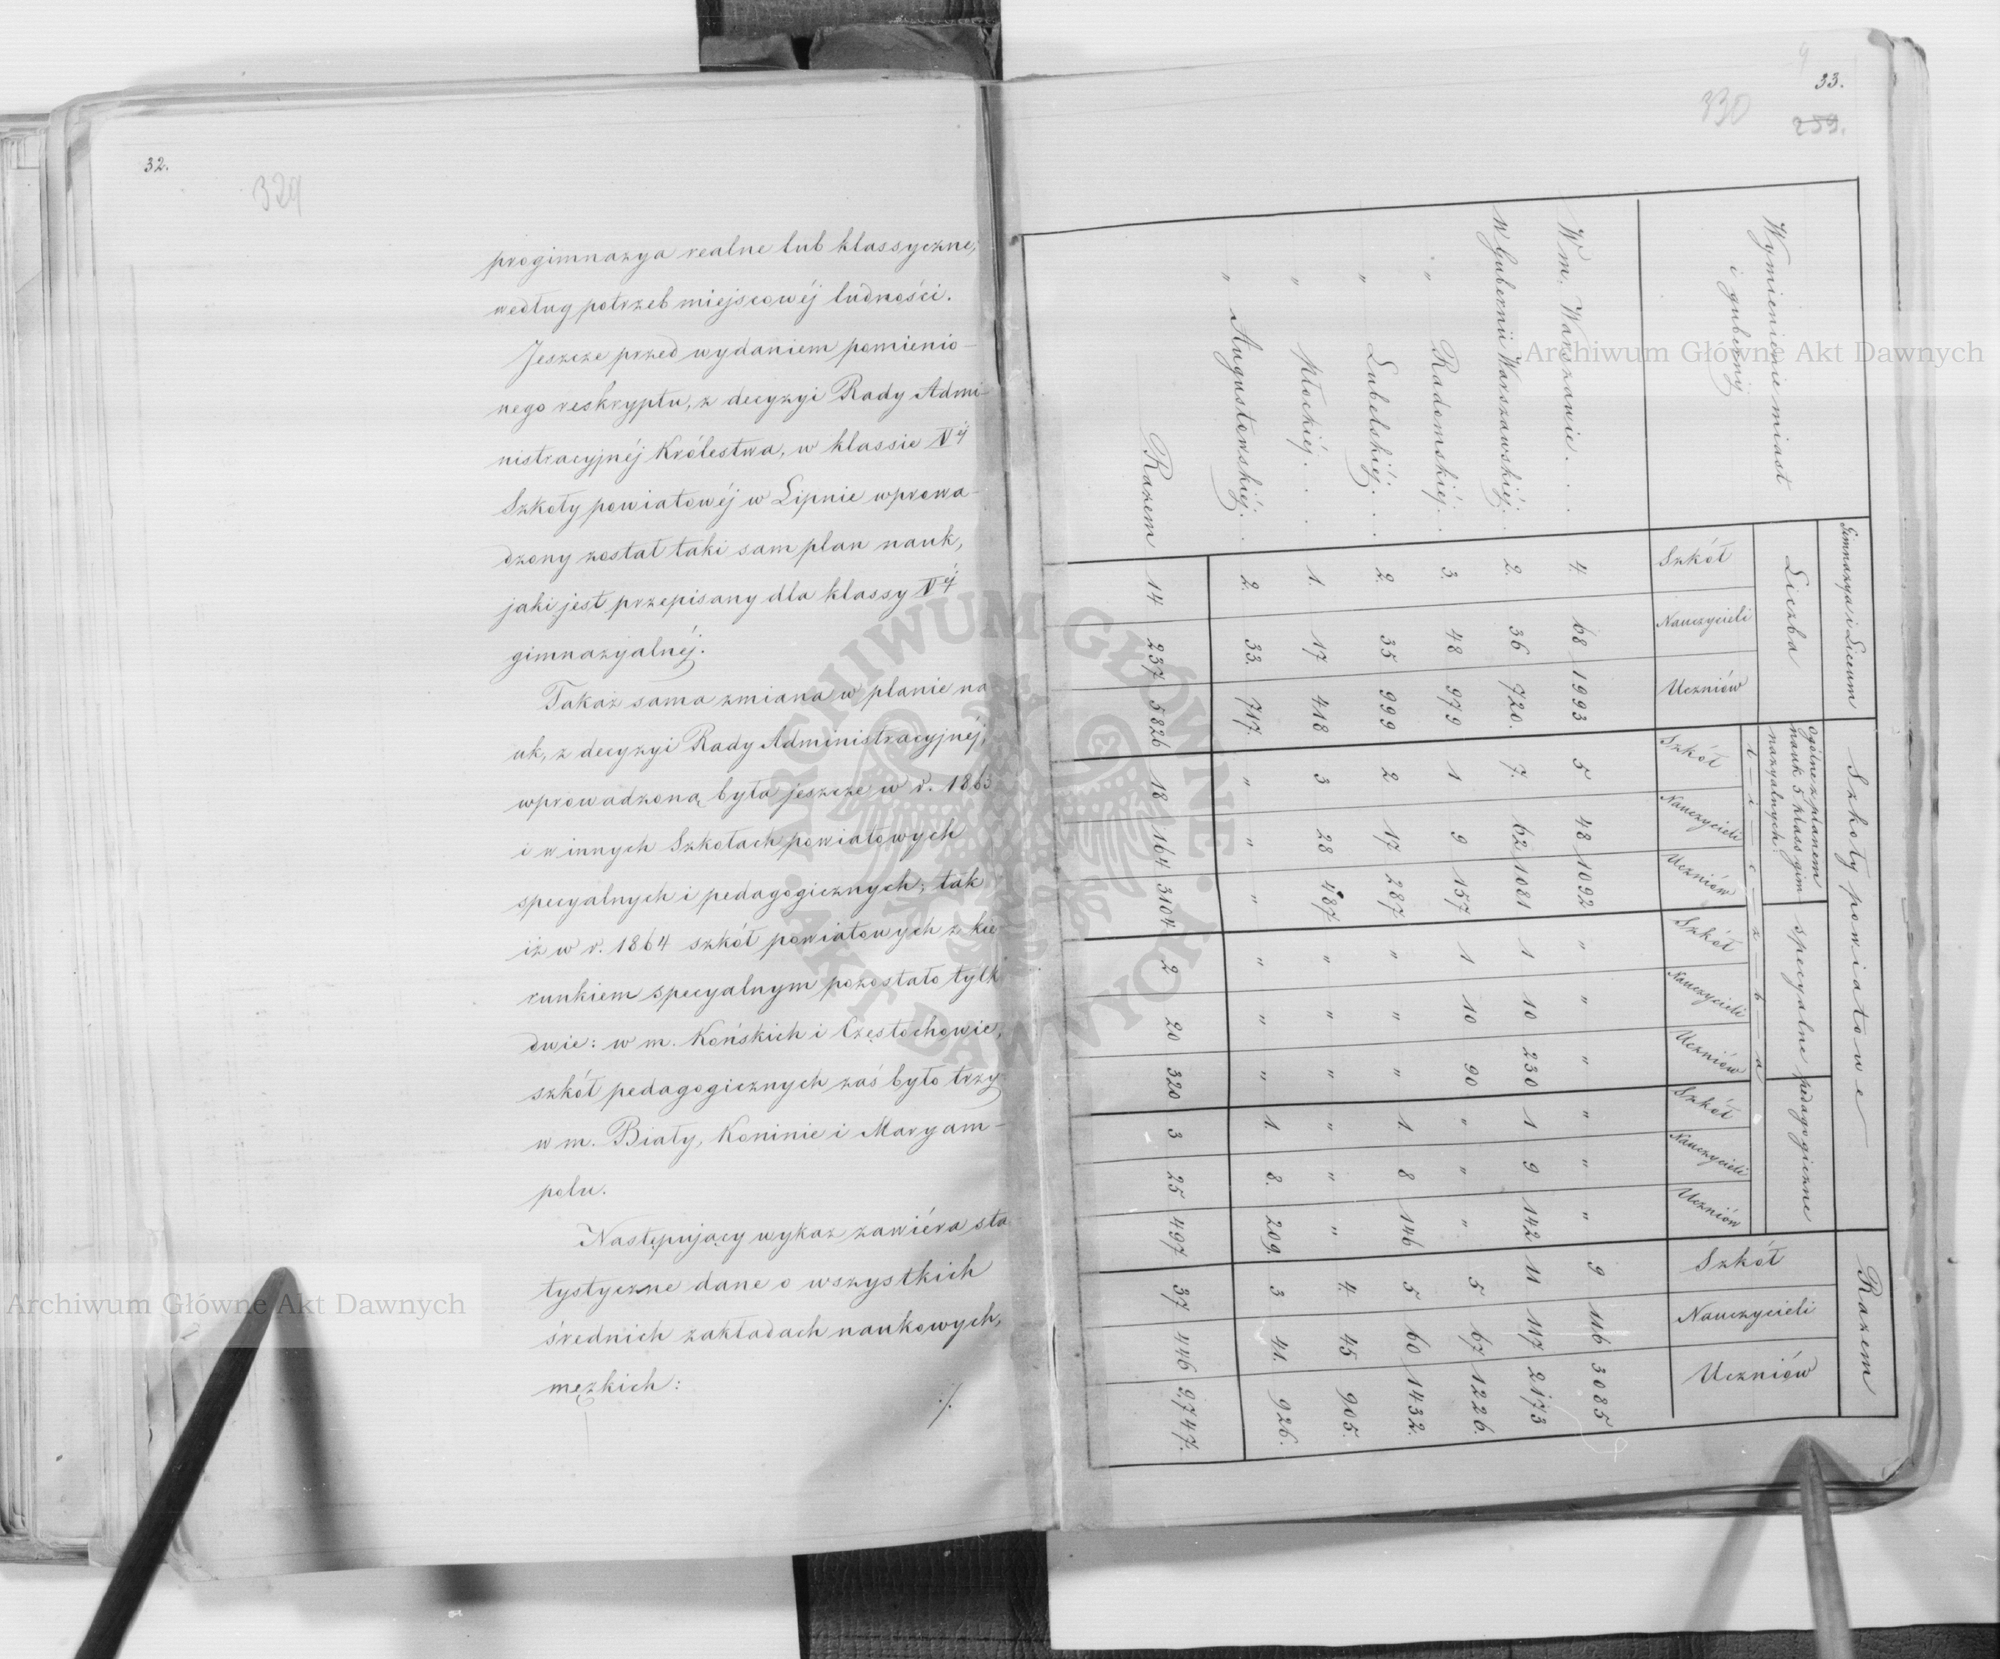 32.
329
progimnazya realne lub klassyczne,
według potrzeb miejscowéj ludności.
Jeszcze przed wydaniem pomienio-
nego reskryptu, z decyzyi Rady Admi-
nistracyjnéj Królestwa, w klassie Véj
Szkoły powiatowéj w Lipnie wprowa-
dzony został taki sam plan nauk,
jaki jest przepisany dla klassy Véj
gimnazyalnéj.
Takaż sama zmiana w planie na
uk, z decyzyi Rady Administracyjnéj,
wprowadzoną była jeszcze w r. 1863
i w innych Szkołach powiatowych
specyalnych i pedagogicznych; tak
iż w r. 1864 szkół powiatowych z kie
runkiem specyalnym pozostało tylk
dwie: w m. Końskich i Częstochowie,
szkół pedagogicznych zaś było trzy
w m. Biały, Koninie i Maryam-
polu.
Następujący wykaz zawiéra sta
tystyczne dane o wszystkich
średnich zakładach naukowych,
męzkich:
./.
33.
330
259.
Wymienienie miast i gubernij
Gimnazya i Liceum
Szkoły powiatowe
Razem
Liczba
Ogólne z planem nauk 5 klass gimnazyalnych
specyalne
pedagogiczne
Liczba
Szkół Nauczycieli Uczniów Szkół Nauczycieli Uczniów Szkół Nauczycieli Uczniów Szkół Nauczycieli Uczniów Szkół Nauczycieli Uczniów
W m. Warszawie . . 4. 68 1993 5 48 1092 " " " " " " 9 116 3085
W Gubernii Warszawskiéj . 2. 36 720. 7. 62 1081 1 10 230 1 9 142 11 117 2173
" Radomskiéj . . 3. 48 979 1 9 157 1 10 90 " " " 5 67 1226.
" Lubelskiéj . . 2. 35 999 2 17 287 " " " 1. 8 146 5 60 1432.
" Płockiéj . . 1. 17 418 3 28 487 " " " " " " 4. 45 905.
" Augustowskiéj . . 2. 33. 717. " " " " " " 1. 8. 209. 3 41. 926.
Razem 14 237 5826 18 164 3104 2 20 320 3 25 497 37 446 9,747.
Archiwum Główne Akt Dawnych
Archiwum Główne Akt Dawnych
ARCHIWUM GŁÓWNE AKT DAWNYCH